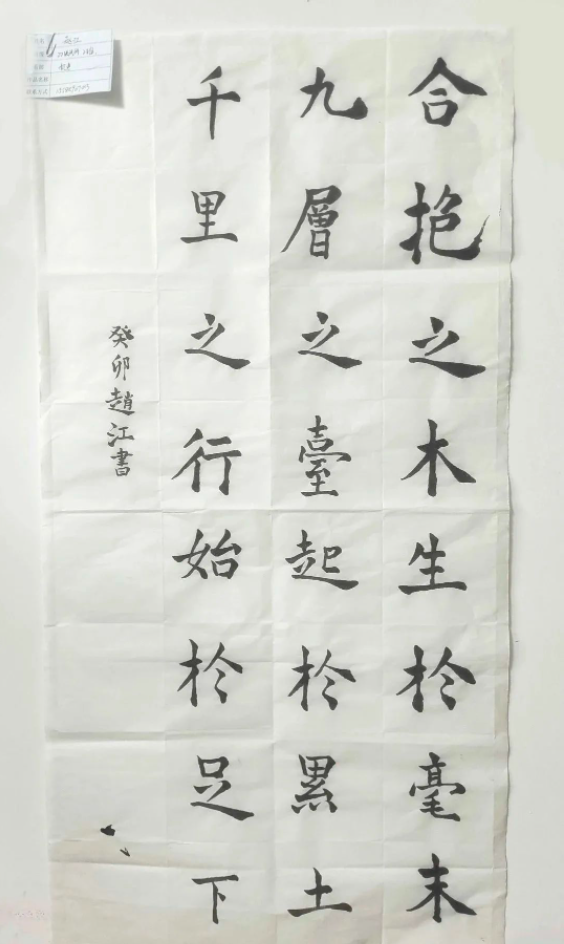 合抱之木生於毫末
九層之臺起於累土
千里之行始於足下
癸卯趙江書